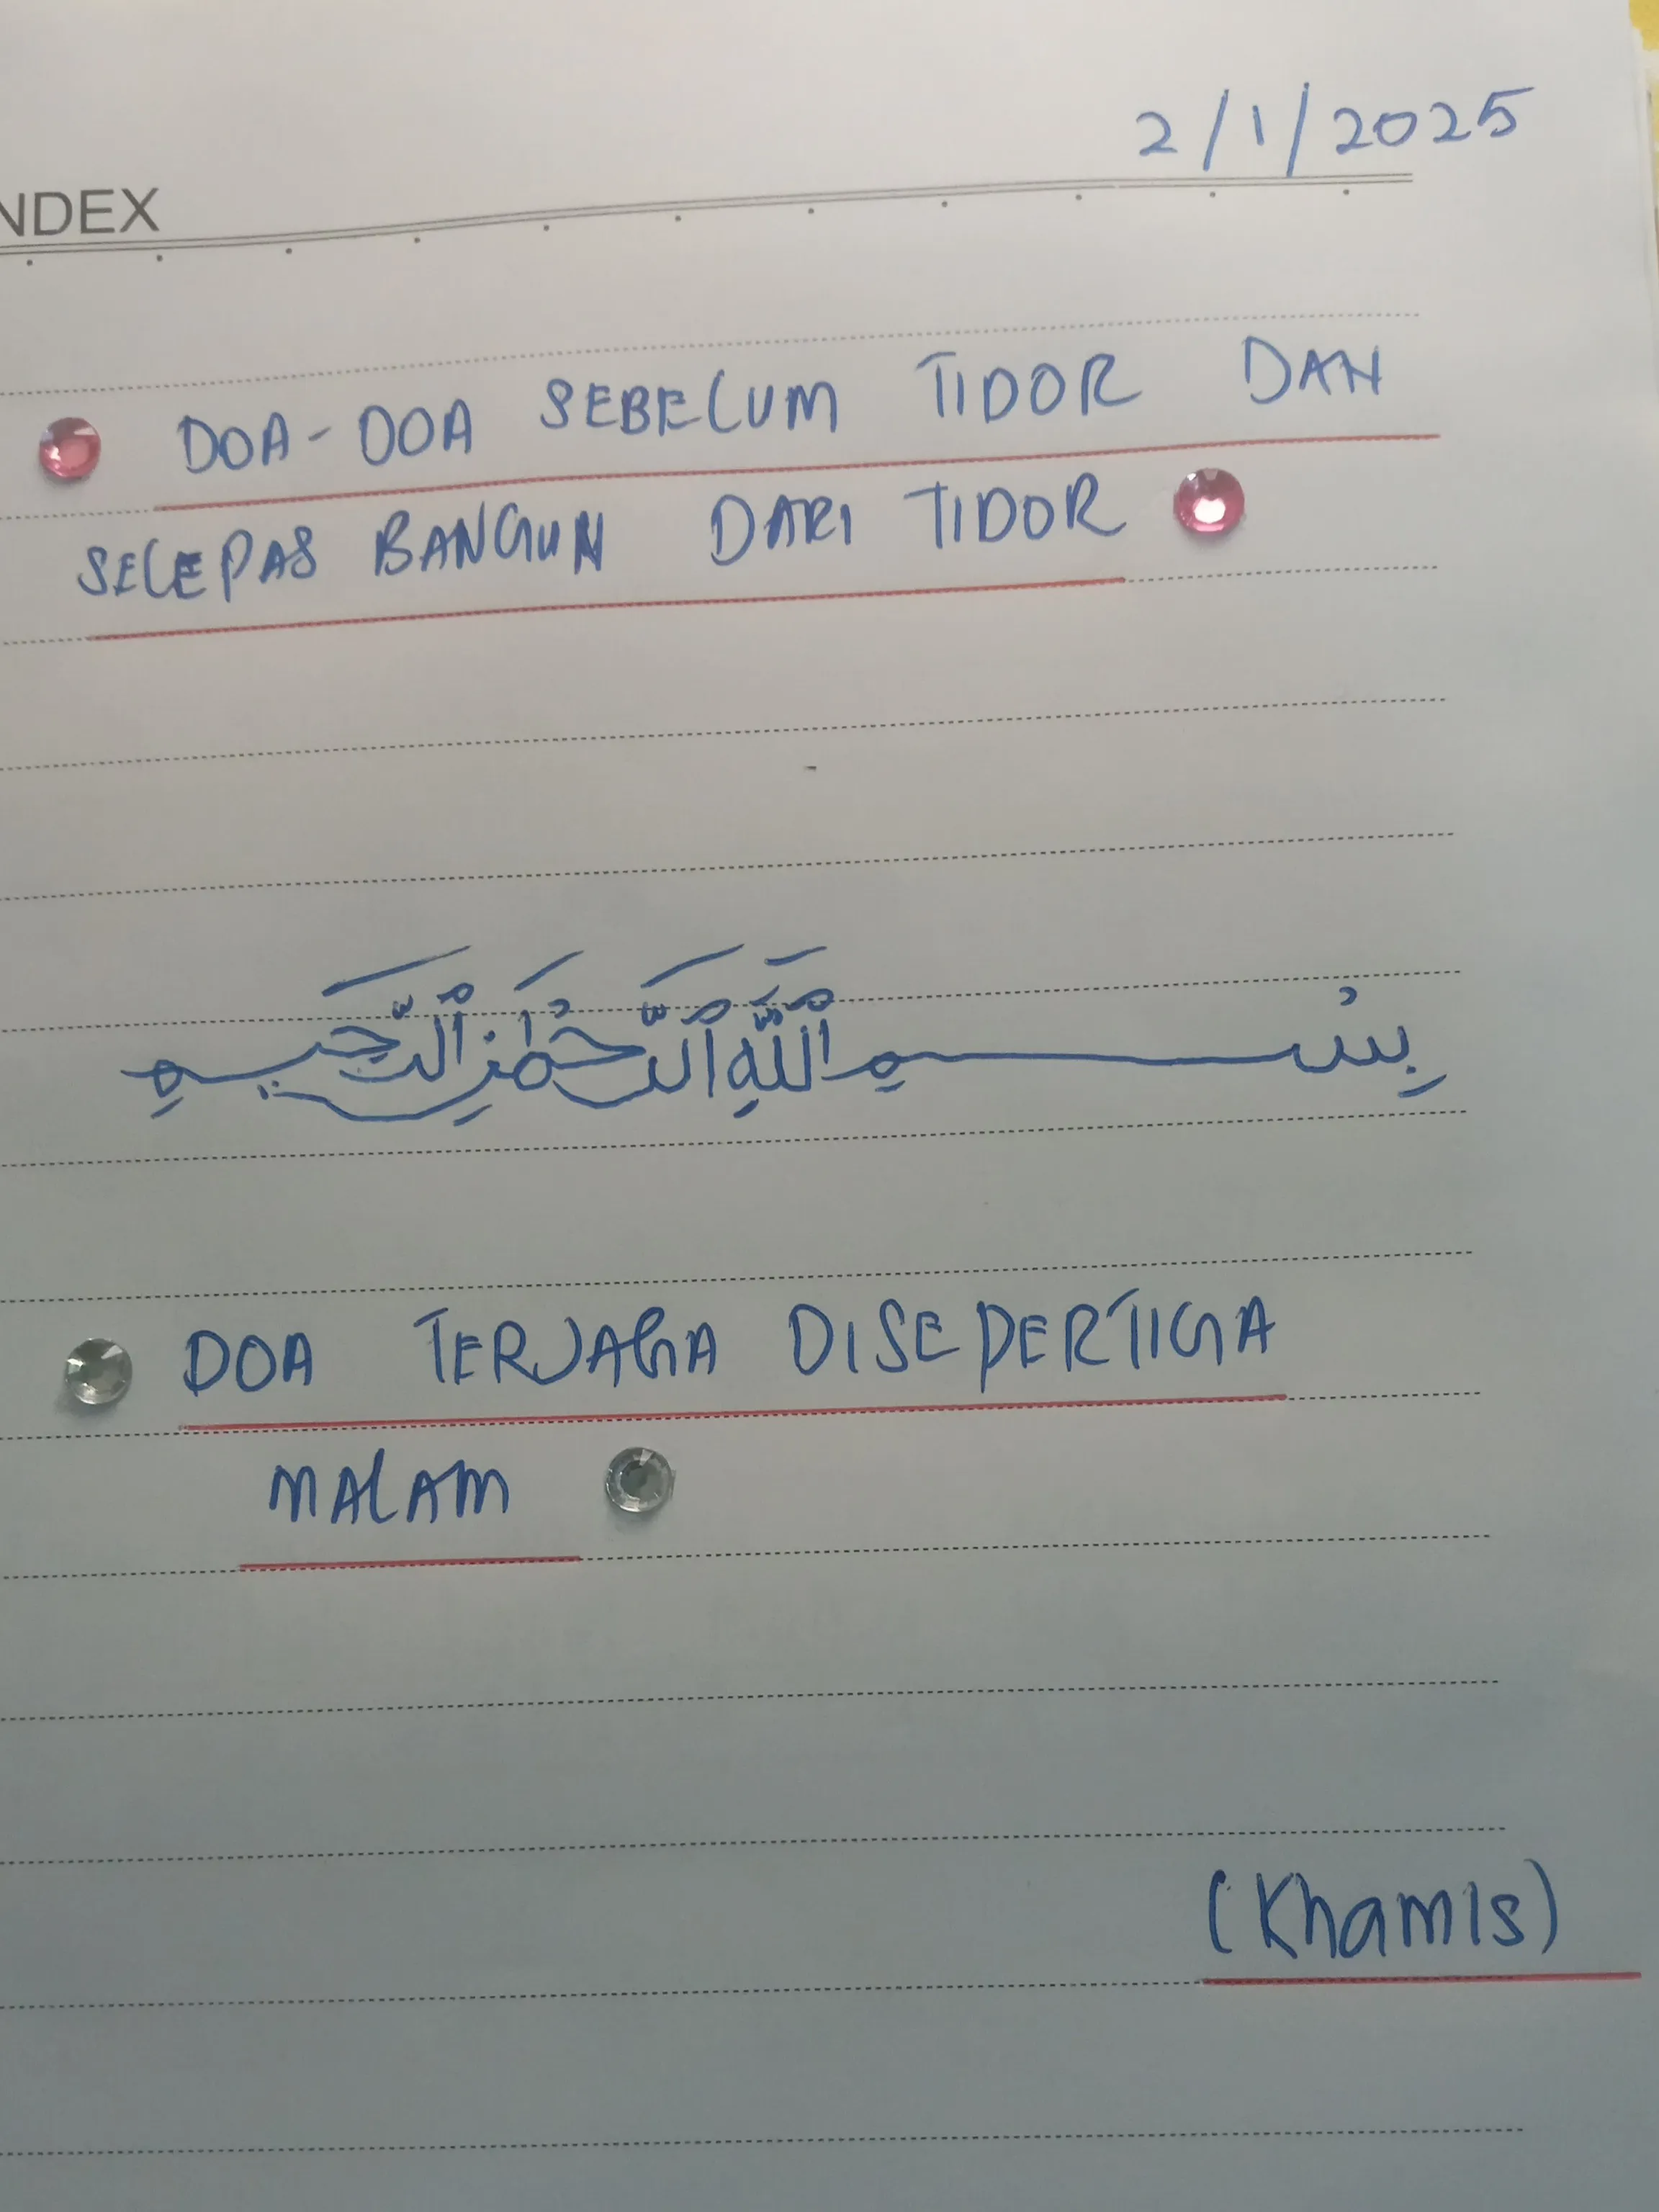 2/1/2025
NDEX
DOA-DOA SEBELUM TIDOR DAN
SELEPAS BANGUN DARI TIDOR
بِسْمِ اللَّهِ الرَّحْمَٰنِ الرَّحِيمِ
DOA TERJAGA DISEPERTIGA
MALAM
(Khamis)